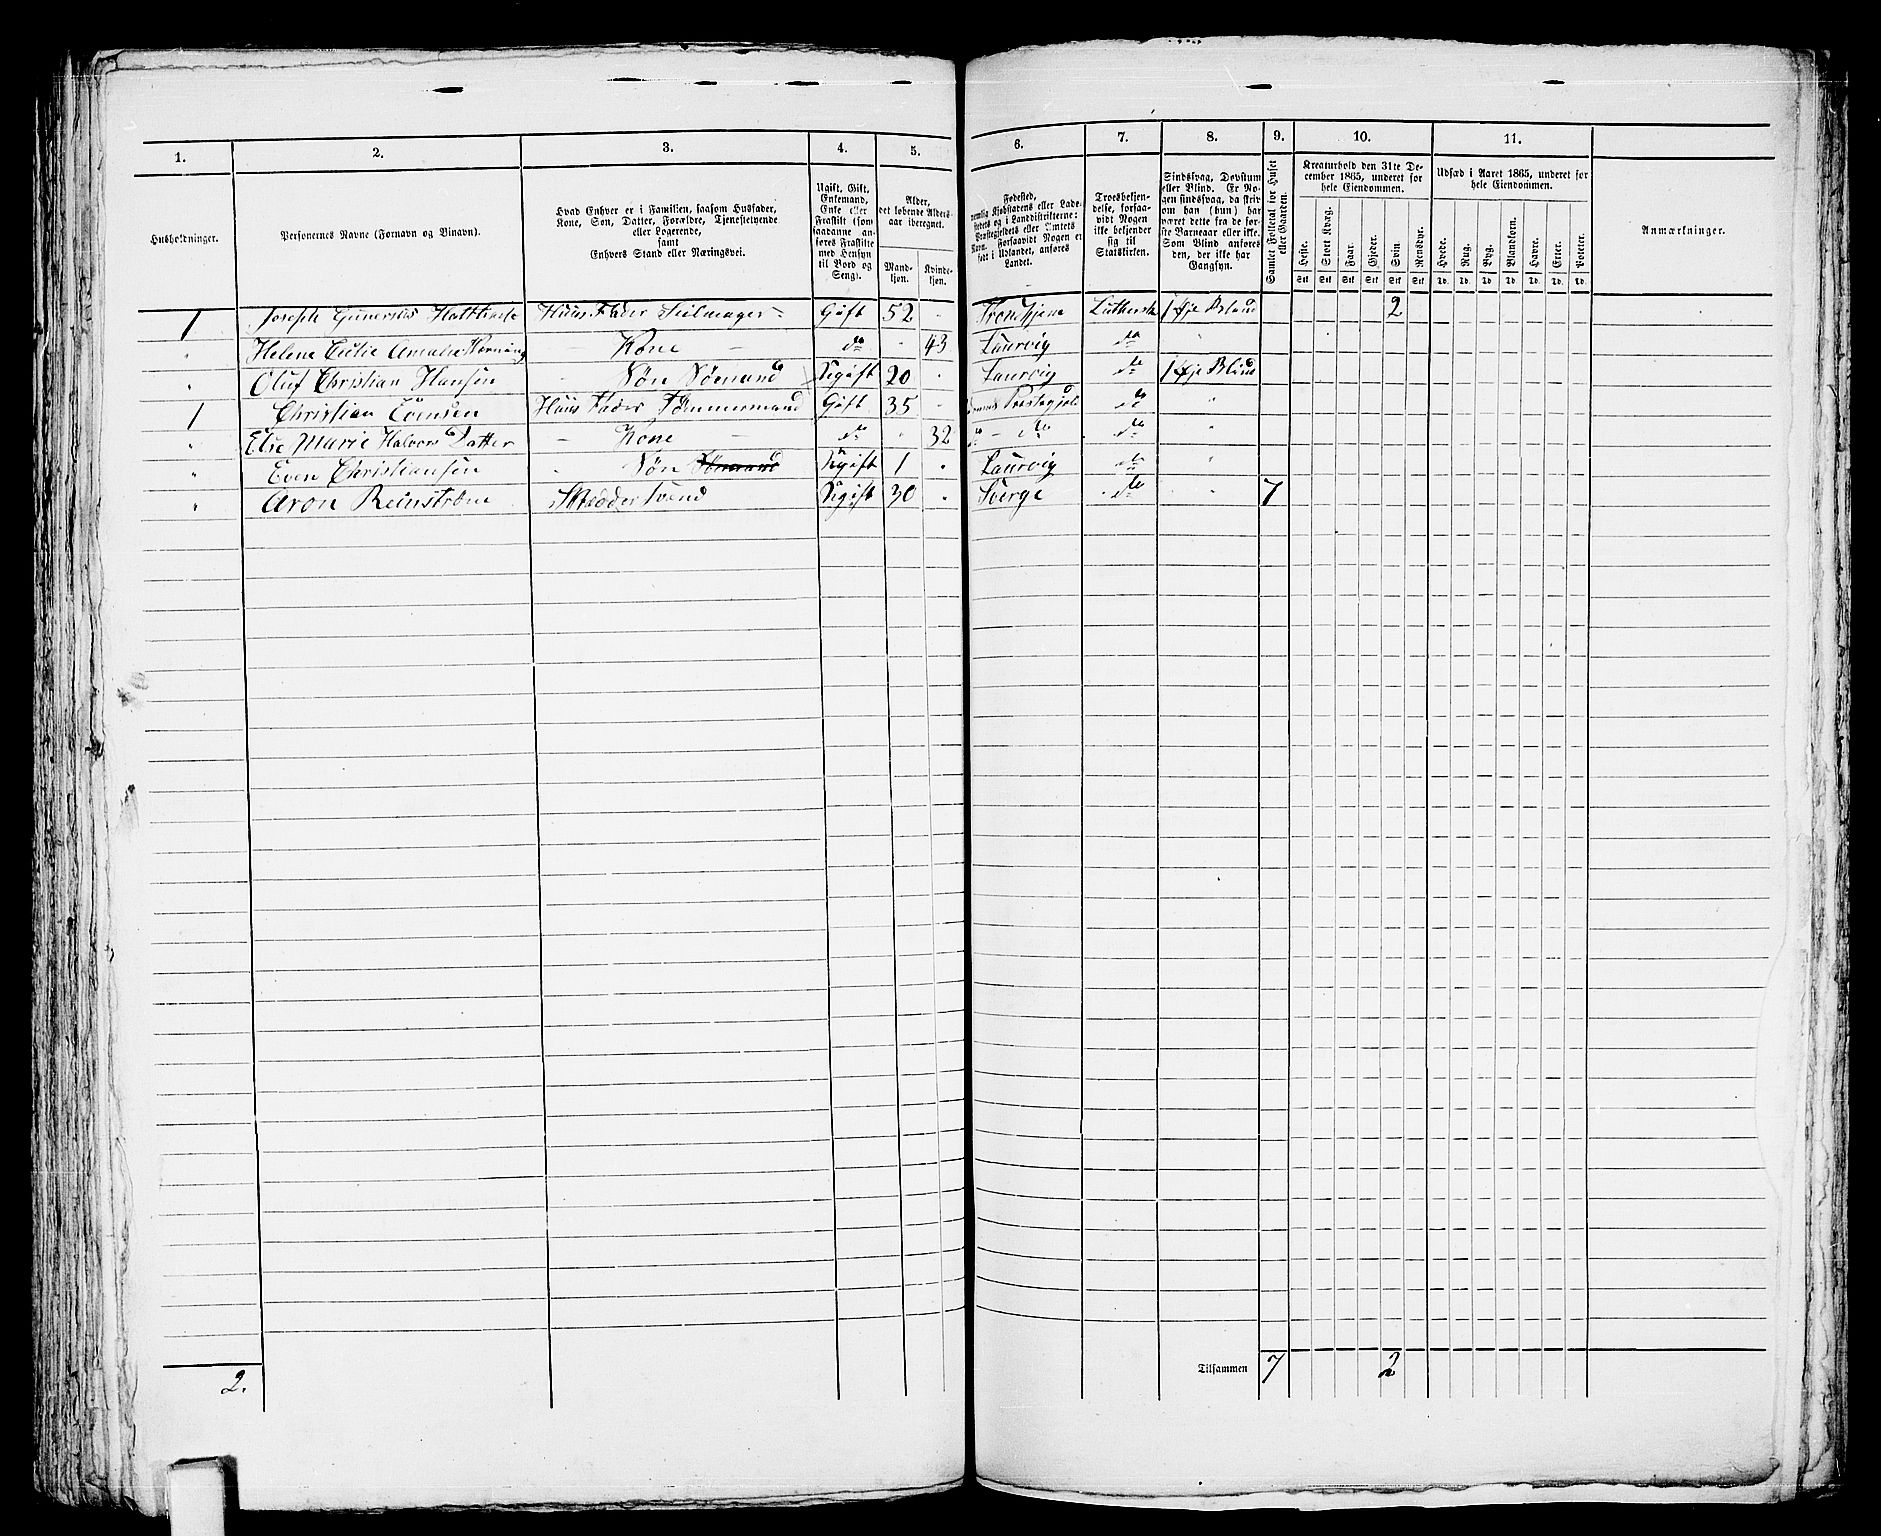 1. 2. 3. 4. 5. 6. 7. 8. 9. 10. 11.
Husholdninger.
Personernes Navne (Fornavn og Vinavn).
Hvad Enhver er i Familien, saasom Husfader,
Kone, Søn, Datter, Forældre, Tjenestetyende
eller Logerende,
samt
Enhvers Stand eller Næringsvei.
Ugift, Gift,
Enkemand,
Enke eller
Fraskilt (som
saadanne an-
føres Fraskilte
med Hensyn
til Bord og
Seng).
Alder,
det løbende Alders-
aar iberegnet.
Mand-
kjøn.
Kvinde-
kjøn.
Fødested,
nemlig Kjøbstadens eller Lade-
stedets og i Landdistrikterne:
Præstegjeldets eller Amtets
Navn. Forsaavidt Nogen er
født i Udlandet, anføres
Landet.
Troesbekjen-
delse, forsaa-
vidt Nogen
ikke bekjender
sig til
Statskirken.
Sindssvag, Døvstum
eller Blind. Er No-
gen sindssvag, da skriv
om han (hun) har
været dette fra de før-
ste Barneaar eller ikke.
Som Blind anføres
den, der ikke har
Gangsyn.
Samlet Folketal for Huset
eller Gaarden.
Kreaturhold den 31te De-
cember 1865, underet for
hele Eiendommen.
Heste. Stort Kvæg. Faar. Gjeder. Svin. Rensdyr.
Stk Stk Stk Stk Stk Stk
Udsæd i Aaret 1865, underet for
hele Eiendommen.
Hvede. Rug. Byg. Blandkorn. Havre. Erter. Poteter.
Td. Td. Td. Td. Td. Td. Td.
Anmærkninger.
1 Joseph Gunerius Huus Fader Seilmager Gift 52 " Trondhjem Luthersk 1 Øje Blind 2
" Helene Cecilie Amalie Kone do " 43 Laurvig do "
" Oluf Christian Hansen Søn Sømand Ugift 20 " Laurvig do 1 Øje Blind
1 Christian Evensen Huus Fader Tømmermand Gift 35 " Prestegjeld do "
" Else Marie Halvors Datter — Kone — do " 32 do — do do "
" Even Christiansen Søn Sømand Ugift 1 " Laurvig do "
" Aron Reinstrøm Skrædder Svend Ugift 30 " Sverge do " 7
2. Tilsammen 7 2